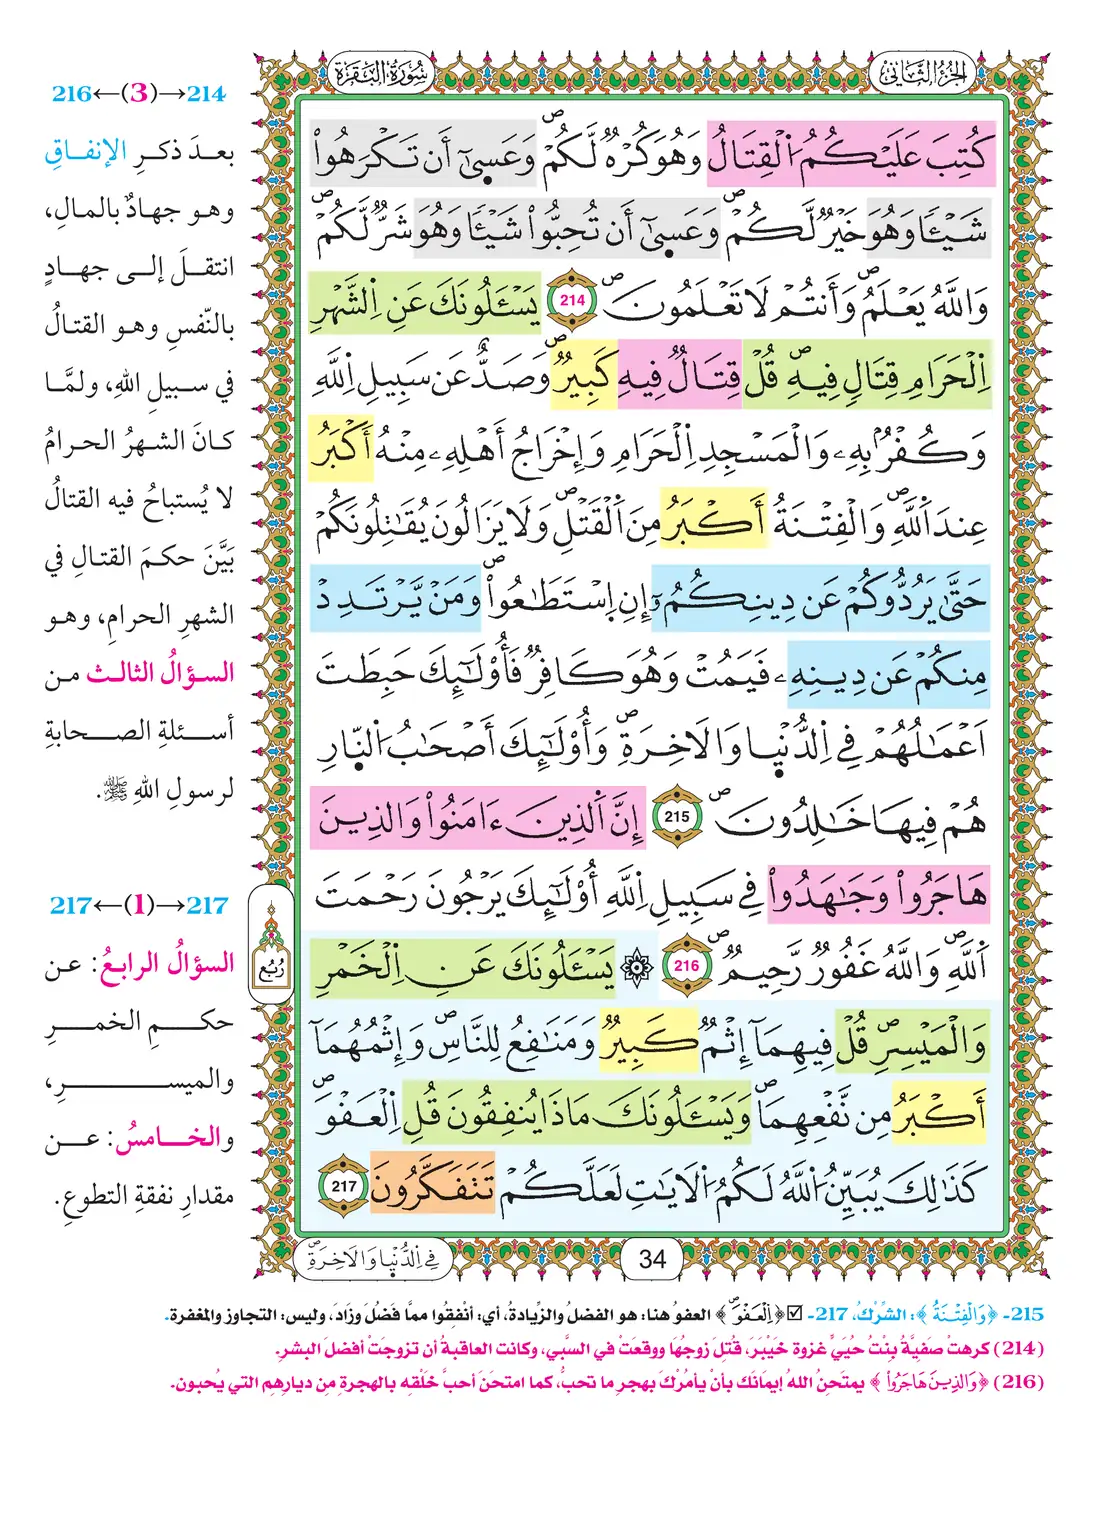 الجزء الثاني
سورة البقرة
كُتِبَ عَلَيْكُمُ اُ۬لْقِتَالُ وَهُوَ كُرْهٞ لَّكُمْۖ وَعَس۪ىٰٓ أَن تَكْرَهُواْ
شَيْـٔاٗ وَهُوَ خَيْرٞ لَّكُمْۖ وَعَس۪ىٰٓ أَن تُحِبُّواْ شَيْـٔاٗ وَهُوَ شَرّٞ لَّكُمْۖ
وَاللَّهُ يَعْلَمُۖ وَأَنتُمْ لَا تَعْلَمُونَۖ 214 يَسْـَٔلُونَكَ عَنِ اِ۬لشَّهْرِ
اِ۬لْحَرَامِ قِتَالٖ فِيهِۖ قُلْ قِتَالٞ فِيهِ كَبِيرٞۖ وَصَدٌّ عَن سَبِيلِ اِ۬للَّهِ
وَكُفْرُۢ بِهِۦ وَالْمَسْجِدِ اِ۬لْحَرَامِ وَإِخْرَاجُ أَهْلِهِۦ مِنْهُ أَكْبَرُ
عِندَ اَ۬للَّهِۖ وَالْفِتْنَةُ أَكْبَرُ مِنَ اَ۬لْقَتْلِۖ وَلَا يَزَالُونَ يُقَٰتِلُونَكُمْ
حَتَّىٰ يَرُدُّوكُمْ عَن دِينِكُمُۥٓ إِنِ اِ۪سْتَطَٰعُواْۖ وَمَنْ يَّرْتَدِدْ
مِنكُمْ عَن دِينِهِۦ فَيَمُتْ وَهُوَ كَافِرٞ فَأُوْلَٰٓئِكَ حَبِطَتَ
اَعْمَٰلُهُمْ فِے اِ۬لدُّنْي۪ا وَالَاخِرَةِۖ وَأُوْلَٰٓئِكَ أَصْحَٰبُ اُ۬لنّ۪ارِ
هُمْ فِيهَا خَٰلِدُونَۖ 215 إِنَّ اَ۬لذِينَ ءَامَنُواْ وَالذِينَ
هَاجَرُواْ وَجَٰهَدُواْ فِے سَبِيلِ اِ۬للَّهِ أُوْلَٰٓئِكَ يَرْجُونَ رَحْمَتَ
اَ۬للَّهِۖ وَاللَّهُ غَفُورٞ رَّحِيمٞۖ 216 ۞ يَسْـَٔلُونَكَ عَنِ اِ۬لْخَمْرِ
وَالْمَيْسِرِۖ قُلْ فِيهِمَآ إِثْمٞ كَبِيرٞ وَمَنَٰفِعُ لِلنَّاسِۖ وَإِثْمُهُمَآ
أَكْبَرُ مِن نَّفْعِهِمَاۖ وَيَسْـَٔلُونَكَ مَاذَا يُنفِقُونَ قُلِ اِ۬لْعَفْوَۖ
كَذَٰلِكَ يُبَيِّنُ اُ۬للَّهُ لَكُمُ اُ۬لَايَٰتِ لَعَلَّكُمْ تَتَفَكَّرُونَ 217
فِے اِ۬لدُّنْي۪ا وَالَاخِرَةِۖ
34
رُبُع
214→(3)←216
بعدَ ذكرِ الإنفاقِ
وهو جهادٌ بالمالِ،
انتقلَ إلى جهادٍ
بالنّفسِ وهو القتالُ
في سبيلِ اللهِ، ولمَّا
كانَ الشهرُ الحرامُ
لا يُستباحُ فيه القتالُ
بيَّنَ حكمَ القتالِ في
الشهرِ الحرامِ، وهو
السؤالُ الثالث من
أسئلةِ الصحابةِ
لرسولِ اللهِ ﷺ.
217→(1)←217
السؤالُ الرابعُ: عن
حكمِ الخمرِ
والميسرِ،
والخامسُ: عن
مقدارِ نفقةِ التطوعِ.
215- ﴿وَالْفِتْنَةُ﴾: الشِّرْكُ، 217- ☑﴿اِ۬لْعَفْوَۖ﴾ العفوُ هنا: هو الفضلُ والزِّيادةُ، أي: أنْفِقُوا ممَّا فَضُلَ وزَادَ، وليس: التجاوز والمغفرة.
(214) كرهتْ صفيَّةُ بنْتُ حُيَيٍّ غزوةَ خَيْبَرَ، قُتِلَ زوجُهَا ووقعَتْ في السَّبي، وكانت العاقبةُ أن تزوجَتْ أفضلَ البشرِ.
(216) ﴿وَالذِينَ هَاجَرُواْ﴾ يمتَحنُ اللهُ إيمَانَك بأنْ يأمُرْكَ بهجرِ ما تحبُّ، كما امتحنَ أحبَّ خَلْقِه بالهجرةِ مِن ديارِهِم التي يُحبون.